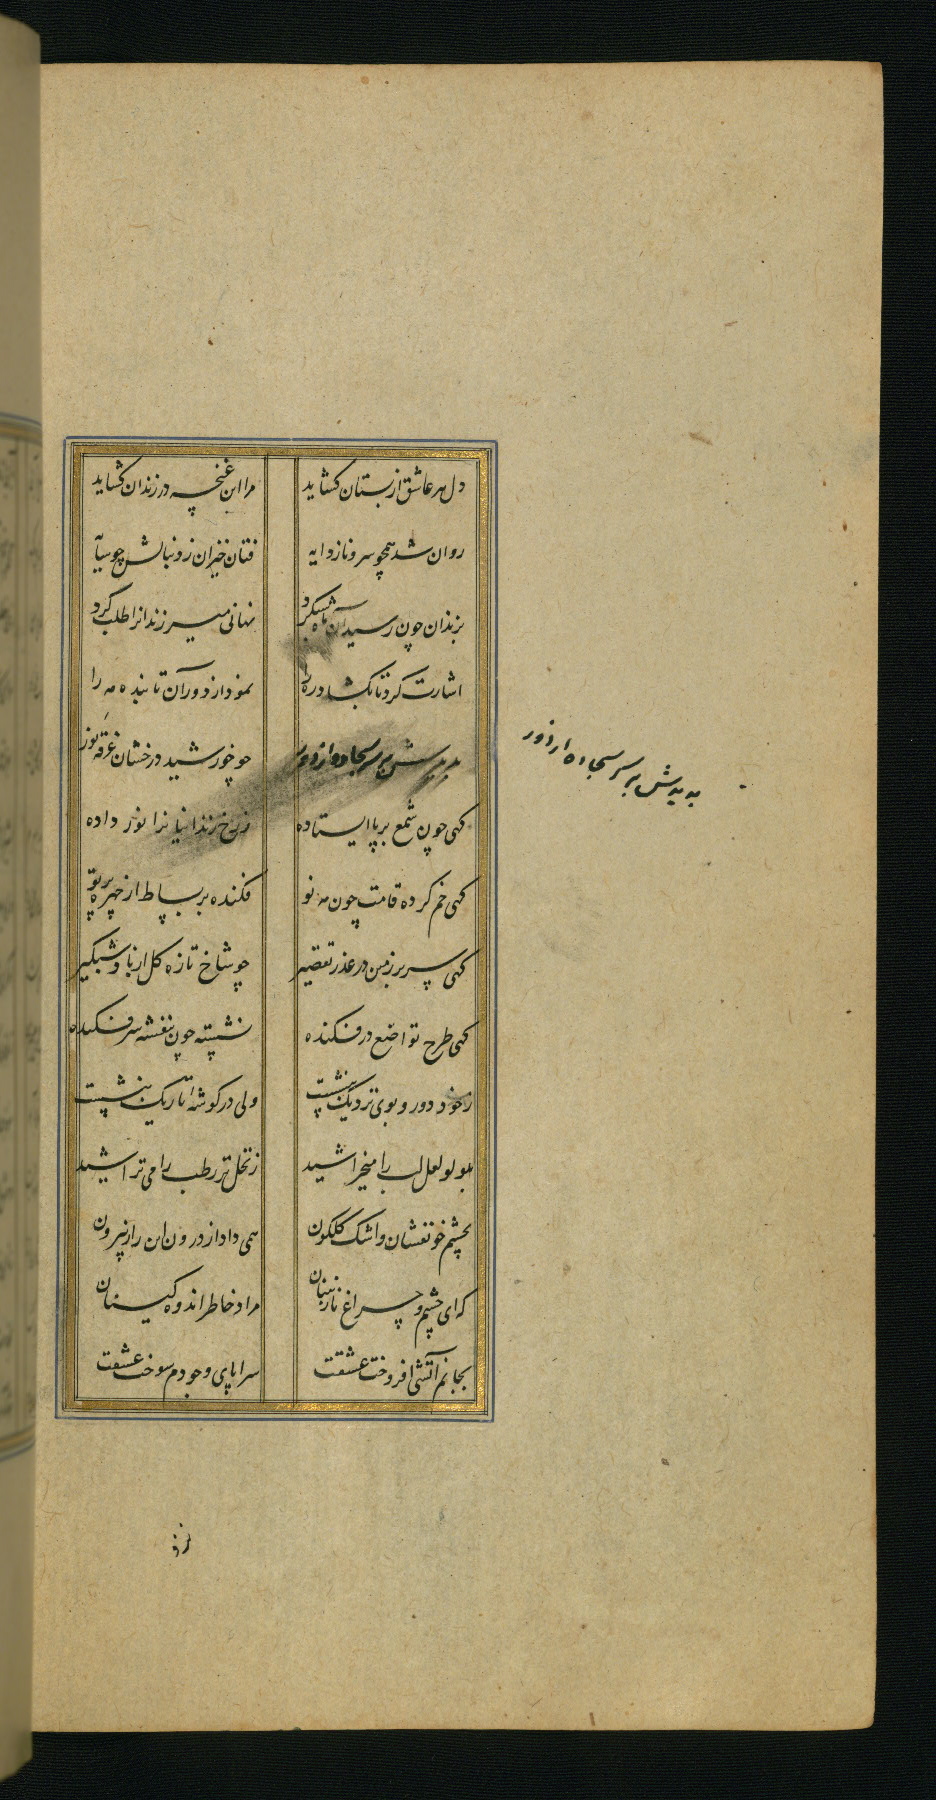 دل هر عاشق از بستان کشاید مرا این غنچه در زندان کشاید
روان شد همچو سرو ناز دایه فتان خیزان ز دنبالش چو سایه
بزندان چون رسید آن ماه شبکرد نهانی میر زندانرا طلب کرد
اشارت کرد تا بکشاد در را نمود از دور آن تابنده مه را
بدیدش بر سر سجاده از دور چو خورشید درخشان غرقه نور
به بدیدش بر سر سجاده از دور
کهی چون شمع بر پا ایستاده ز رخ زندانیانرا نور داده
کهی خم کرده قامت چون مه نو فکنده بر بساط از چهره پرتو
کهی سر بر زمین در عذر تقصیر چو شاخ تازه کل از باد شبکیر
کهی طرح تواضع در فکنده نشسته چون بنفشه سر فکنده
ز خود دور و بوی نزدیک بنشست ولی در کوشهٔ تاریک بنشست
بلولو لعل لب را میخراشید ز نخل تر رطب را می تراشید
بچشم خونفشان و اشک کلکون همی داد از درون این راز بیرون
که ای چشم و چراغ نازنینان مراد خاطر اندوه کینان
بجانم آتشی افروخت عشقت سراپای وجودم سوخت عشقت